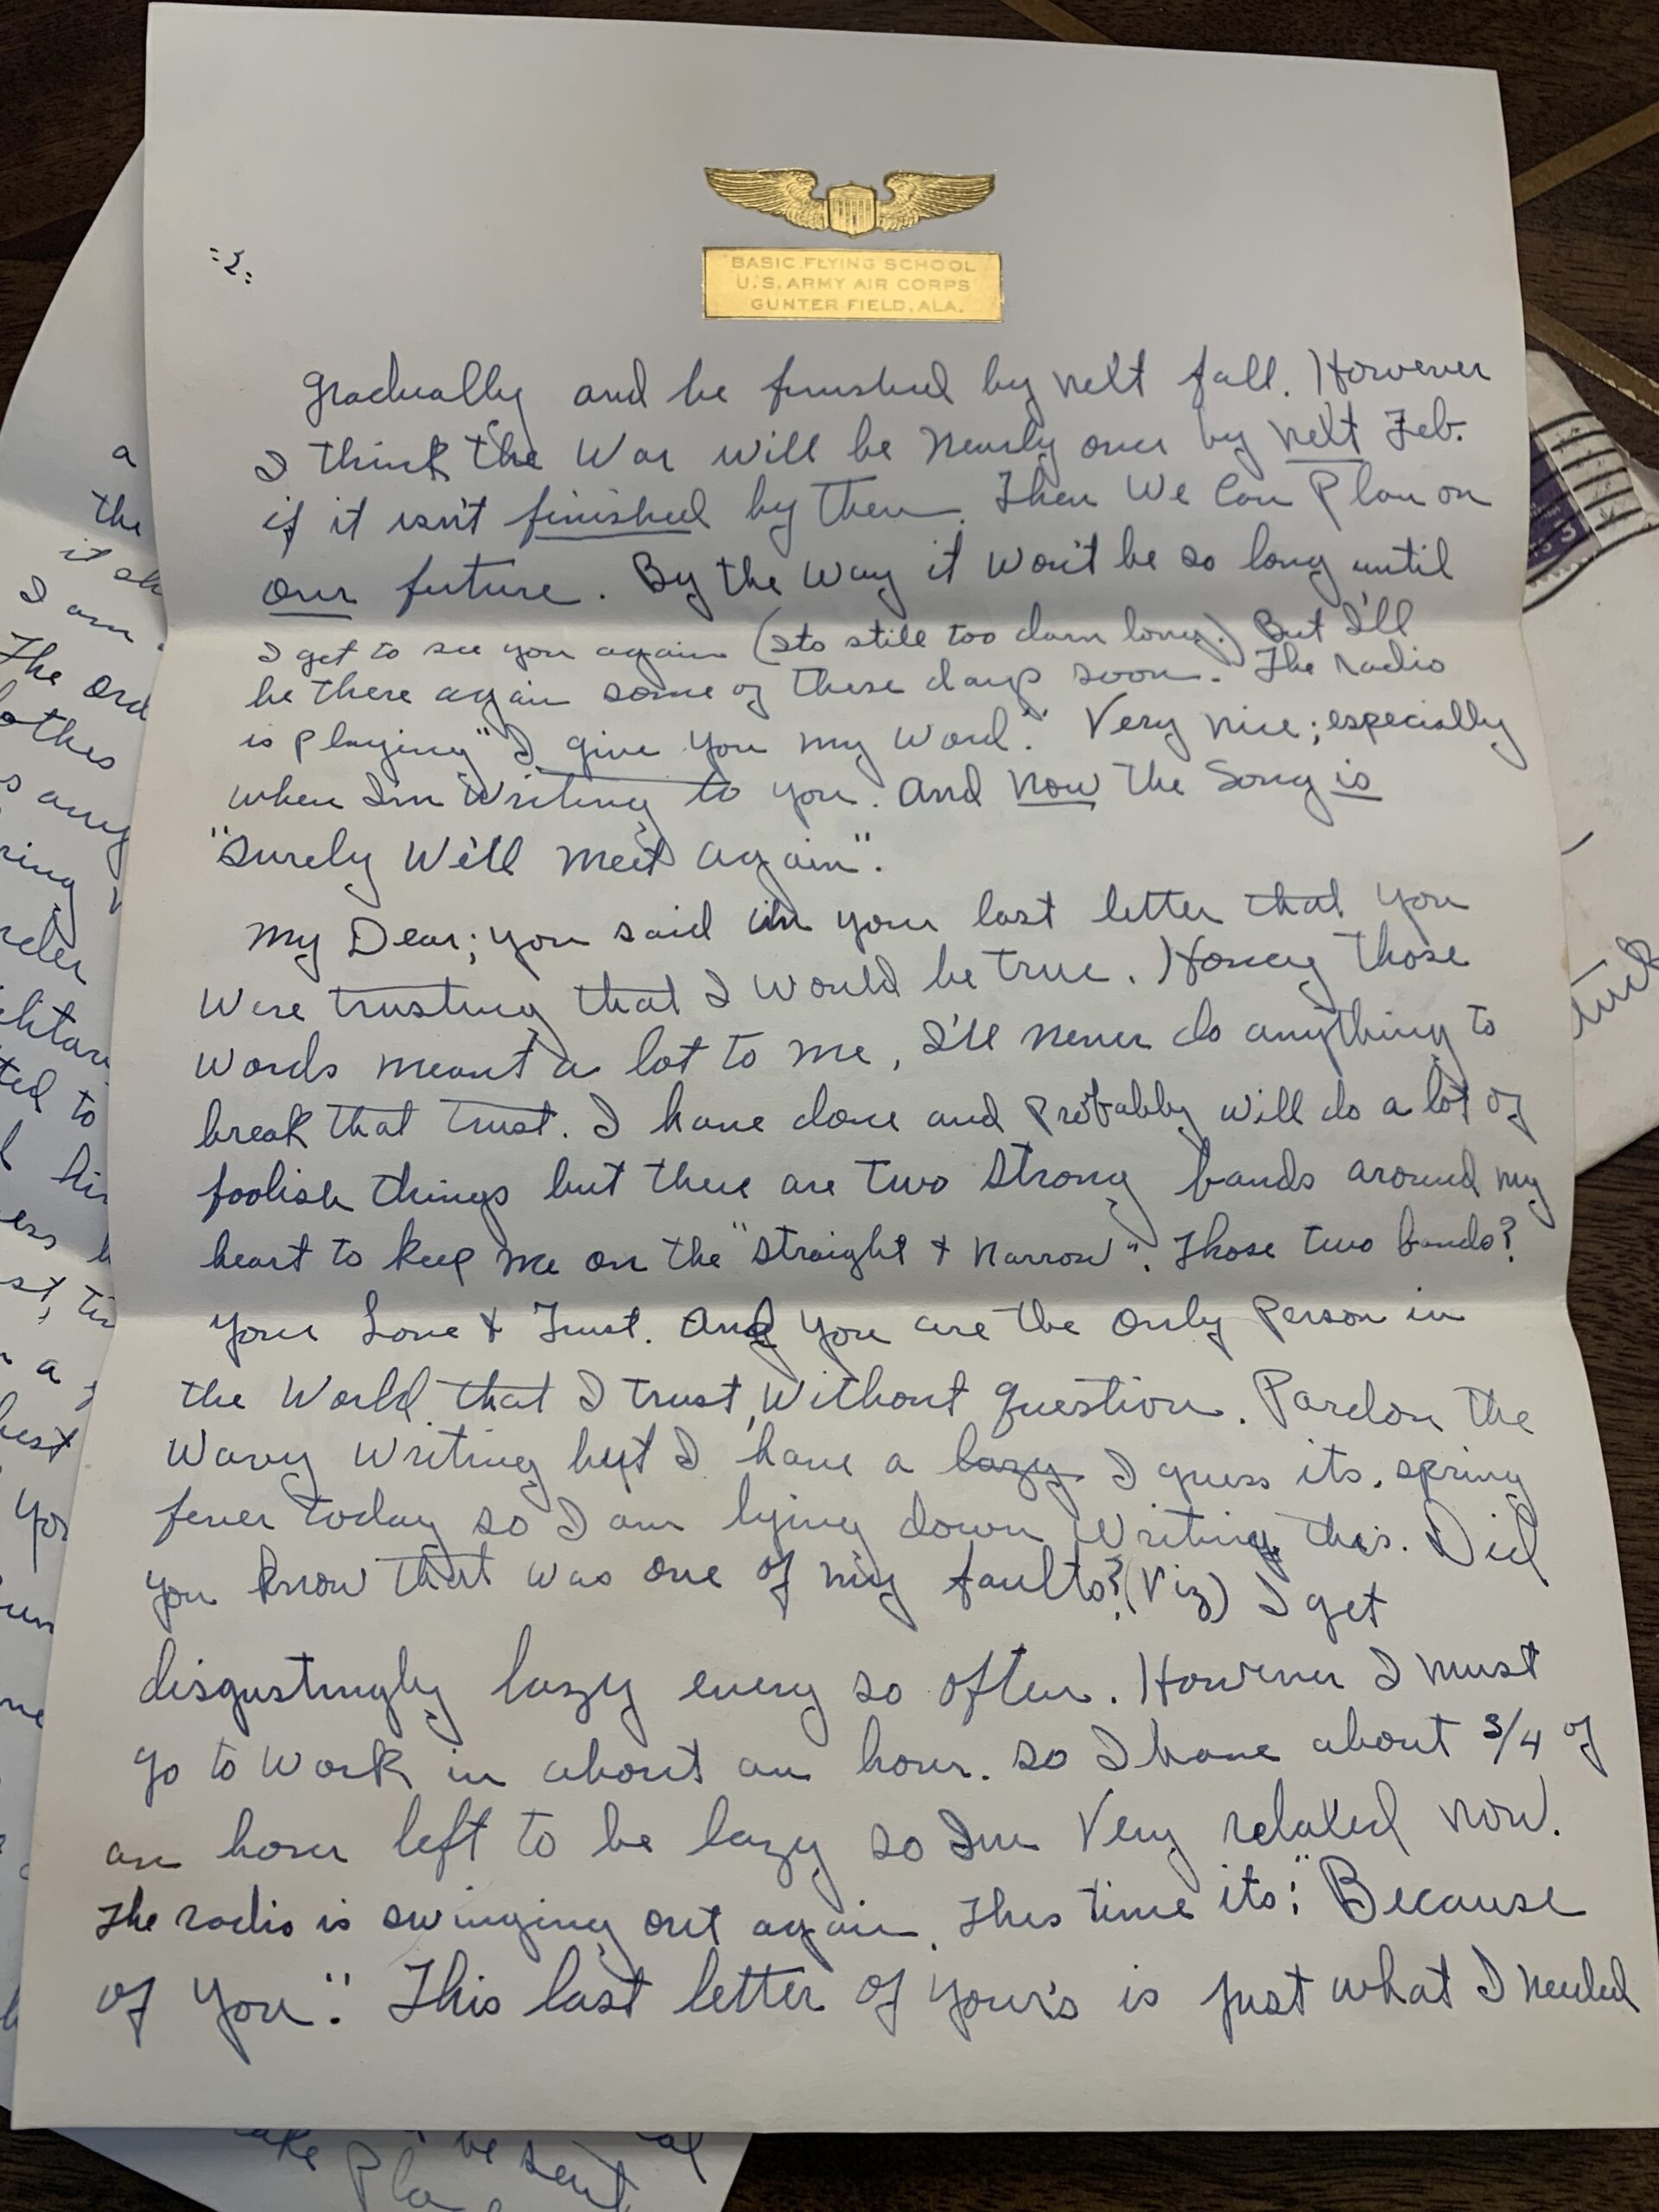 :2:
BASIC FLYING SCHOOL
U.S. ARMY AIR CORPS
GUNTER FIELD, ALA.
gradually and be finished by next fall. However
I think the War will be nearly over by next Feb.
if it isn't finished by then. Then We Can Plan on
our future. By the way it won't be so long until
I get to see you again (its still too darn long.) But I'll
be there again some of these days soon. The radio
is playing "I give you my word." Very nice; especially
when I'm writing to you. And now the song is
"Surely We'll meet again".
My Dear; you said in your last letter that you
were trusting that I would be true. Honey those
words meant a lot to me, I'll never do anything to
break that trust. I have done and probably will do a lot of
foolish things but there are two strong bands around my
heart to keep me on the "straight & narrow". Those two bands?
Your Love & Trust. And you are the only person in
the World that I trust, without question. Pardon the
wavy writing but I have a lazy I guess its spring
fever today so I am lying down writing this. Did
you know that was one of my faults? (Viz) I get
disgustingly lazy every so often. However I must
go to work in about an hour. so I have about 3/4 of
an hour left to be lazy so I'm very relaxed now.
The radio is swinging out again. This time its; "Because
of you". This last letter of your's is just what I needed
a
the
I am
The ord
others
ring
ted to
a
you
be sent
3